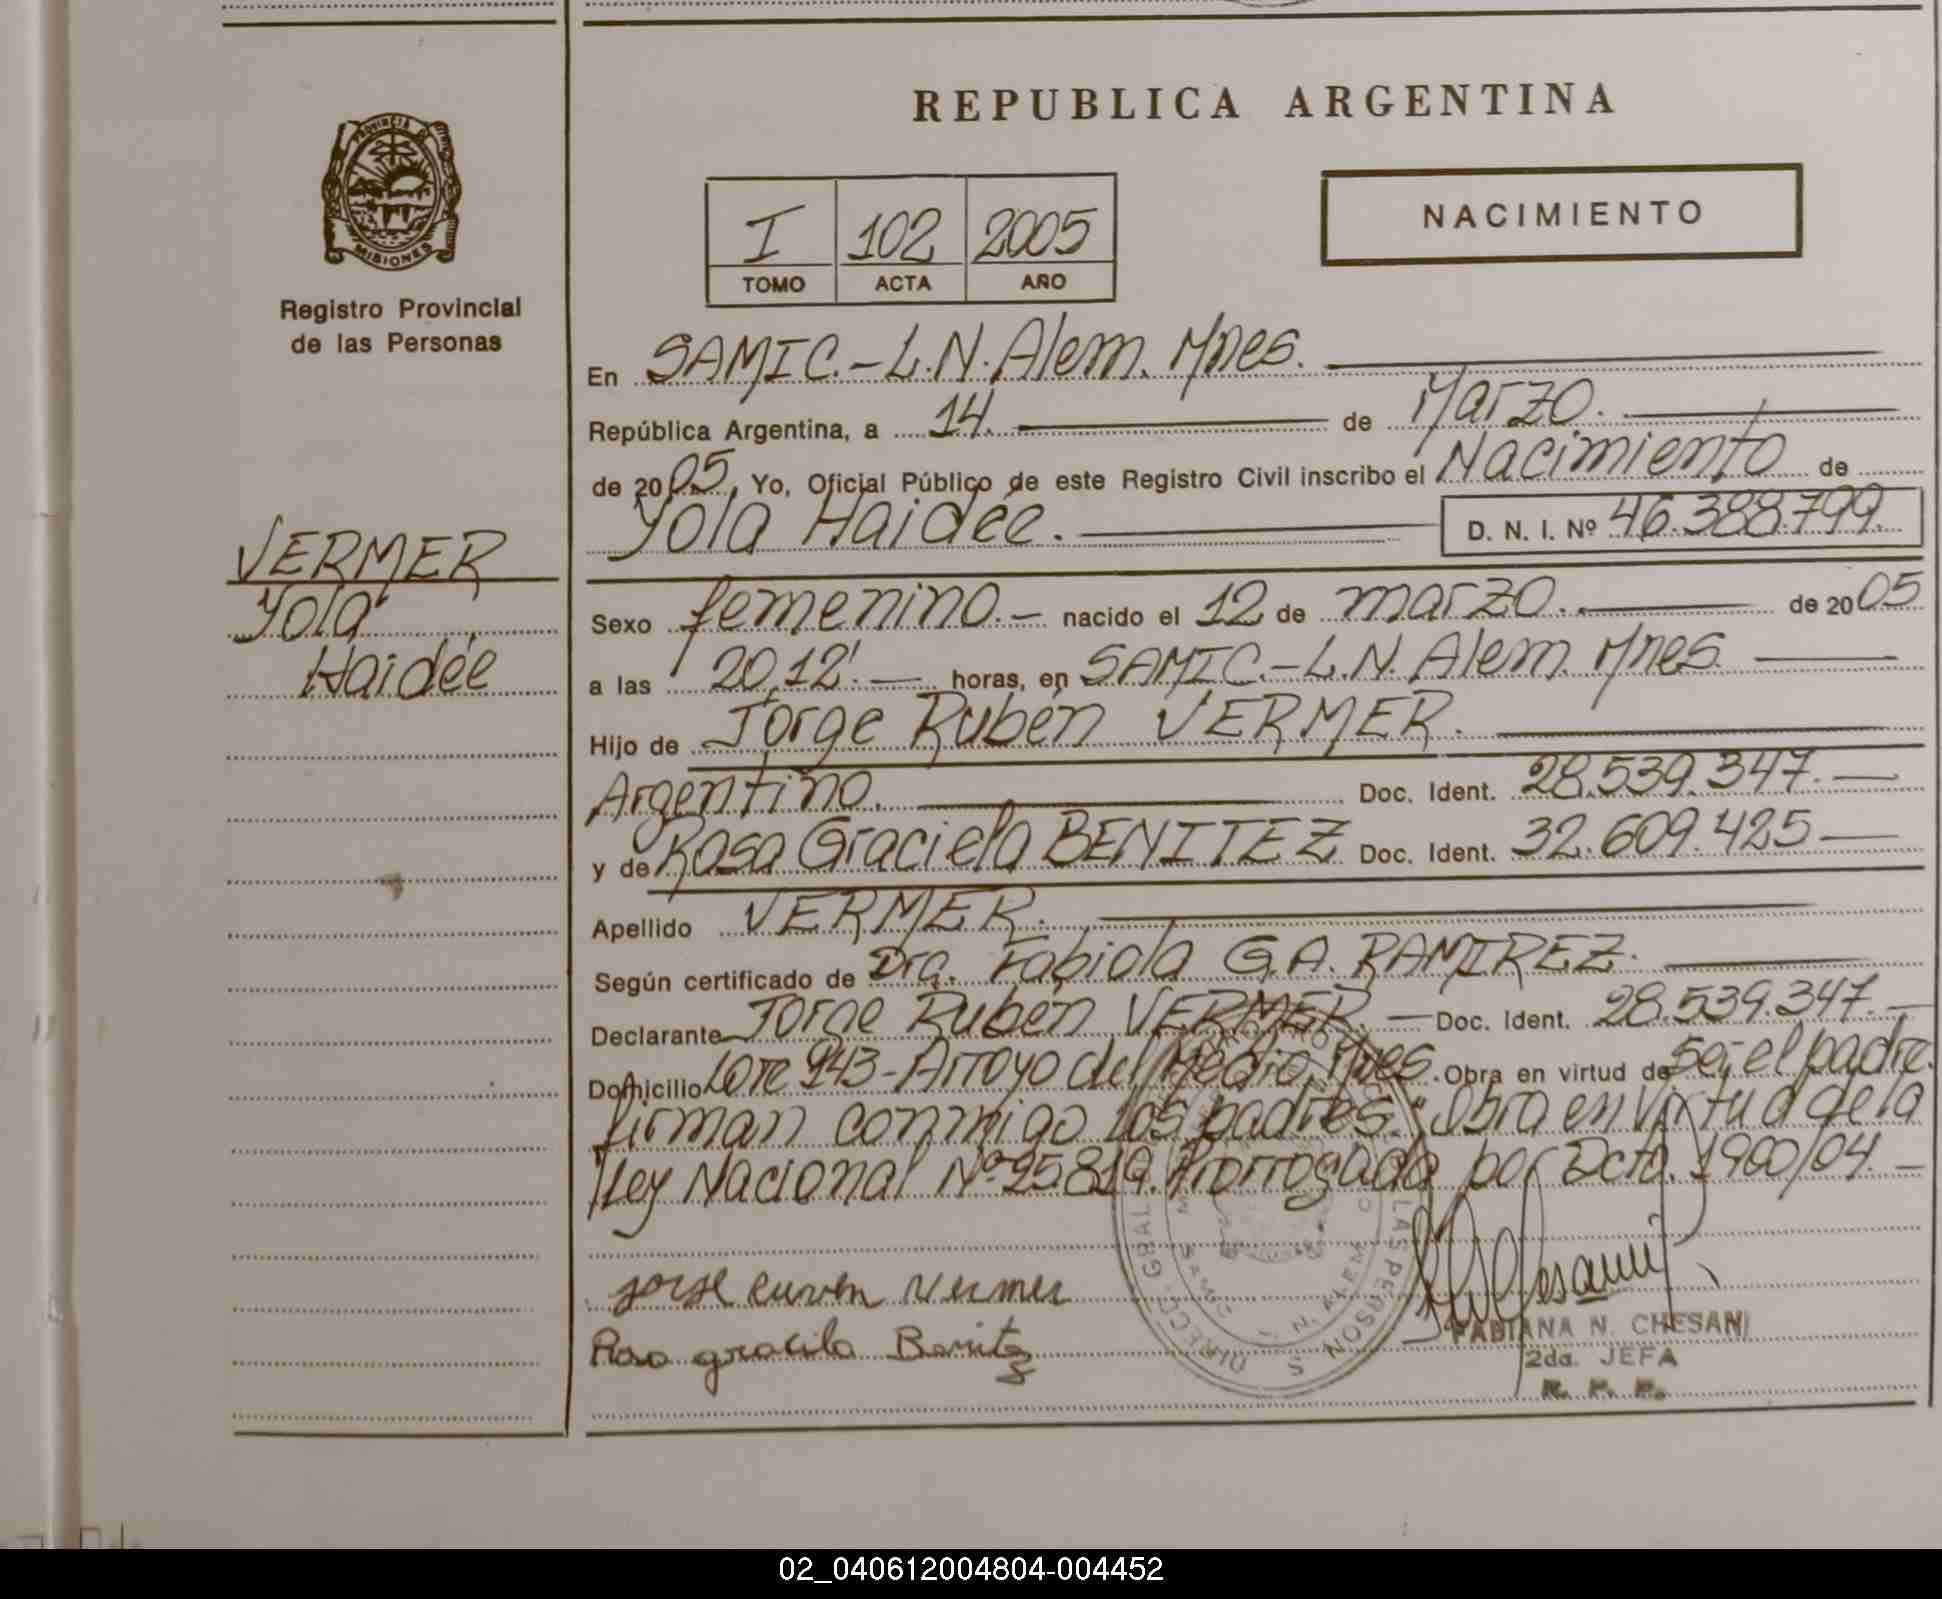 REPUBLICA ARGENTINA
PROVINCIA DE
MISIONES
Registro Provincial
de las Personas
I 102 2005
TOMO ACTA AÑO
NACIMIENTO
En SAMIC.-L.N.Alem. Mnes.
República Argentina, a 14. de Marzo.
de 2005, Yo, Oficial Público de este Registro Civil inscribo el Nacimiento de
Yola Haidée. D. N. I. Nº 46.388.799.
VERMER
Yola
Haidée
Sexo femenino.- nacido el 12 de marzo. de 2005
a las 20,12'.- horas, en SAMIC.-L.N. Alem. Mnes.
Hijo de Jorge Rubén VERMER.
Argentino. Doc. Ident. 28.539.347.-
y de Rosa Graciela BENITEZ Doc. Ident. 32.609.425-
Apellido VERMER.
Según certificado de Dra. Fabiola G.A. RAMIREZ.
Declarante Jorge Rubén VERMER.- Doc. Ident. 28.539.347.-
Domicilio Lote 943-Arroyo del Medio, Mnes. Obra en virtud de Ser el padre.
firman conmigo los padres." Obra en virtud de la
Ley Nacional Nº 25.819. Prorrogada por Dcto. 1900/04.-
Jorge Ruven Vermer
Rosa graciela Benitez
FABIANA N. CHESANI
2da. JEFA
R. P. P.
02_040612004804-004452